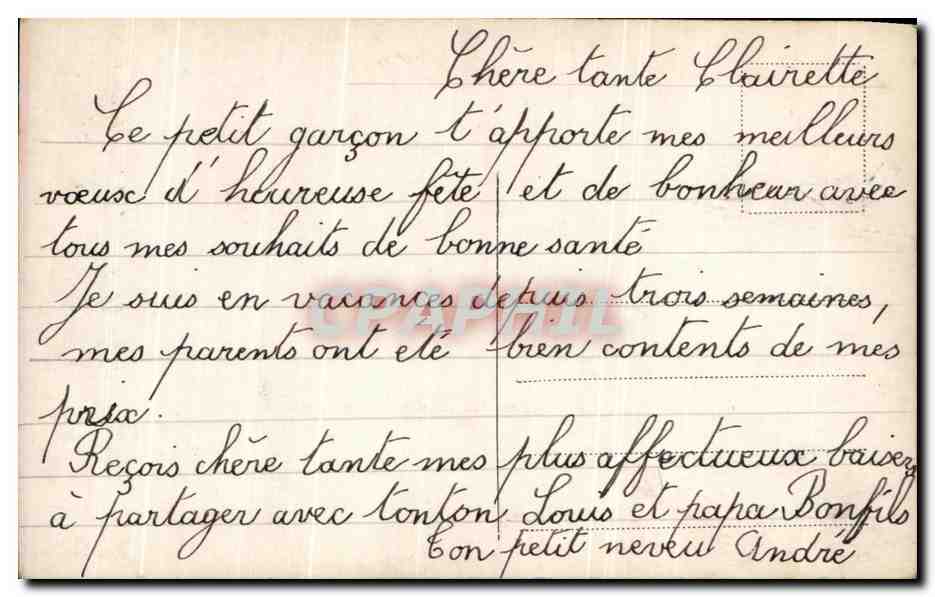 Chère tante Clairette
Ce petit garçon t'apporte mes meilleurs
vœux d'heureuse fête et de bonheur avec
tous mes souhaits de bonne santé
Je suis en vacances depuis trois semaines,
mes parents ont été bien contents de mes
prix.
Reçois chère tante mes plus affectueux baisers
à partager avec tonton Louis et papa Bonfils
Ton petit neveu André
CPAPHIL